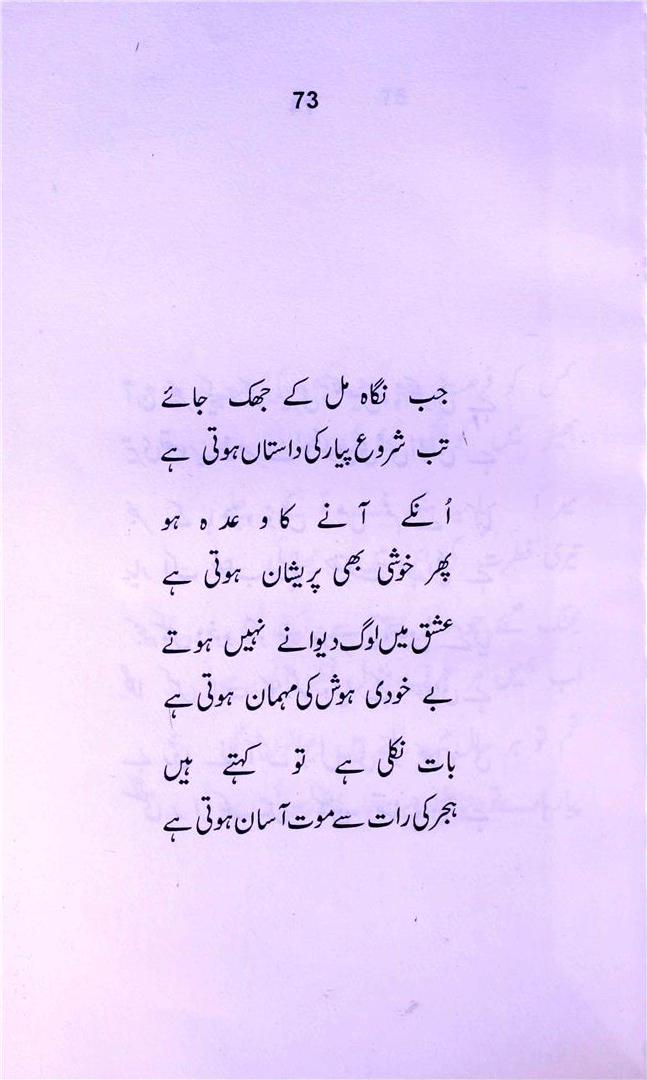 73
جب نگاہ مل کے جھک جائے
تب شروع پیار کی داستاں ہوتی ہے
اُنکے آنے کا وعدہ ہو
پھر خوشی بھی پریشان ہوتی ہے
عشق میں لوگ دیوانے نہیں ہوتے
بے خودی ہوش کی مہمان ہوتی ہے
بات نکلی ہے تو کہتے ہیں
ہجر کی رات سے موت آسان ہوتی ہے